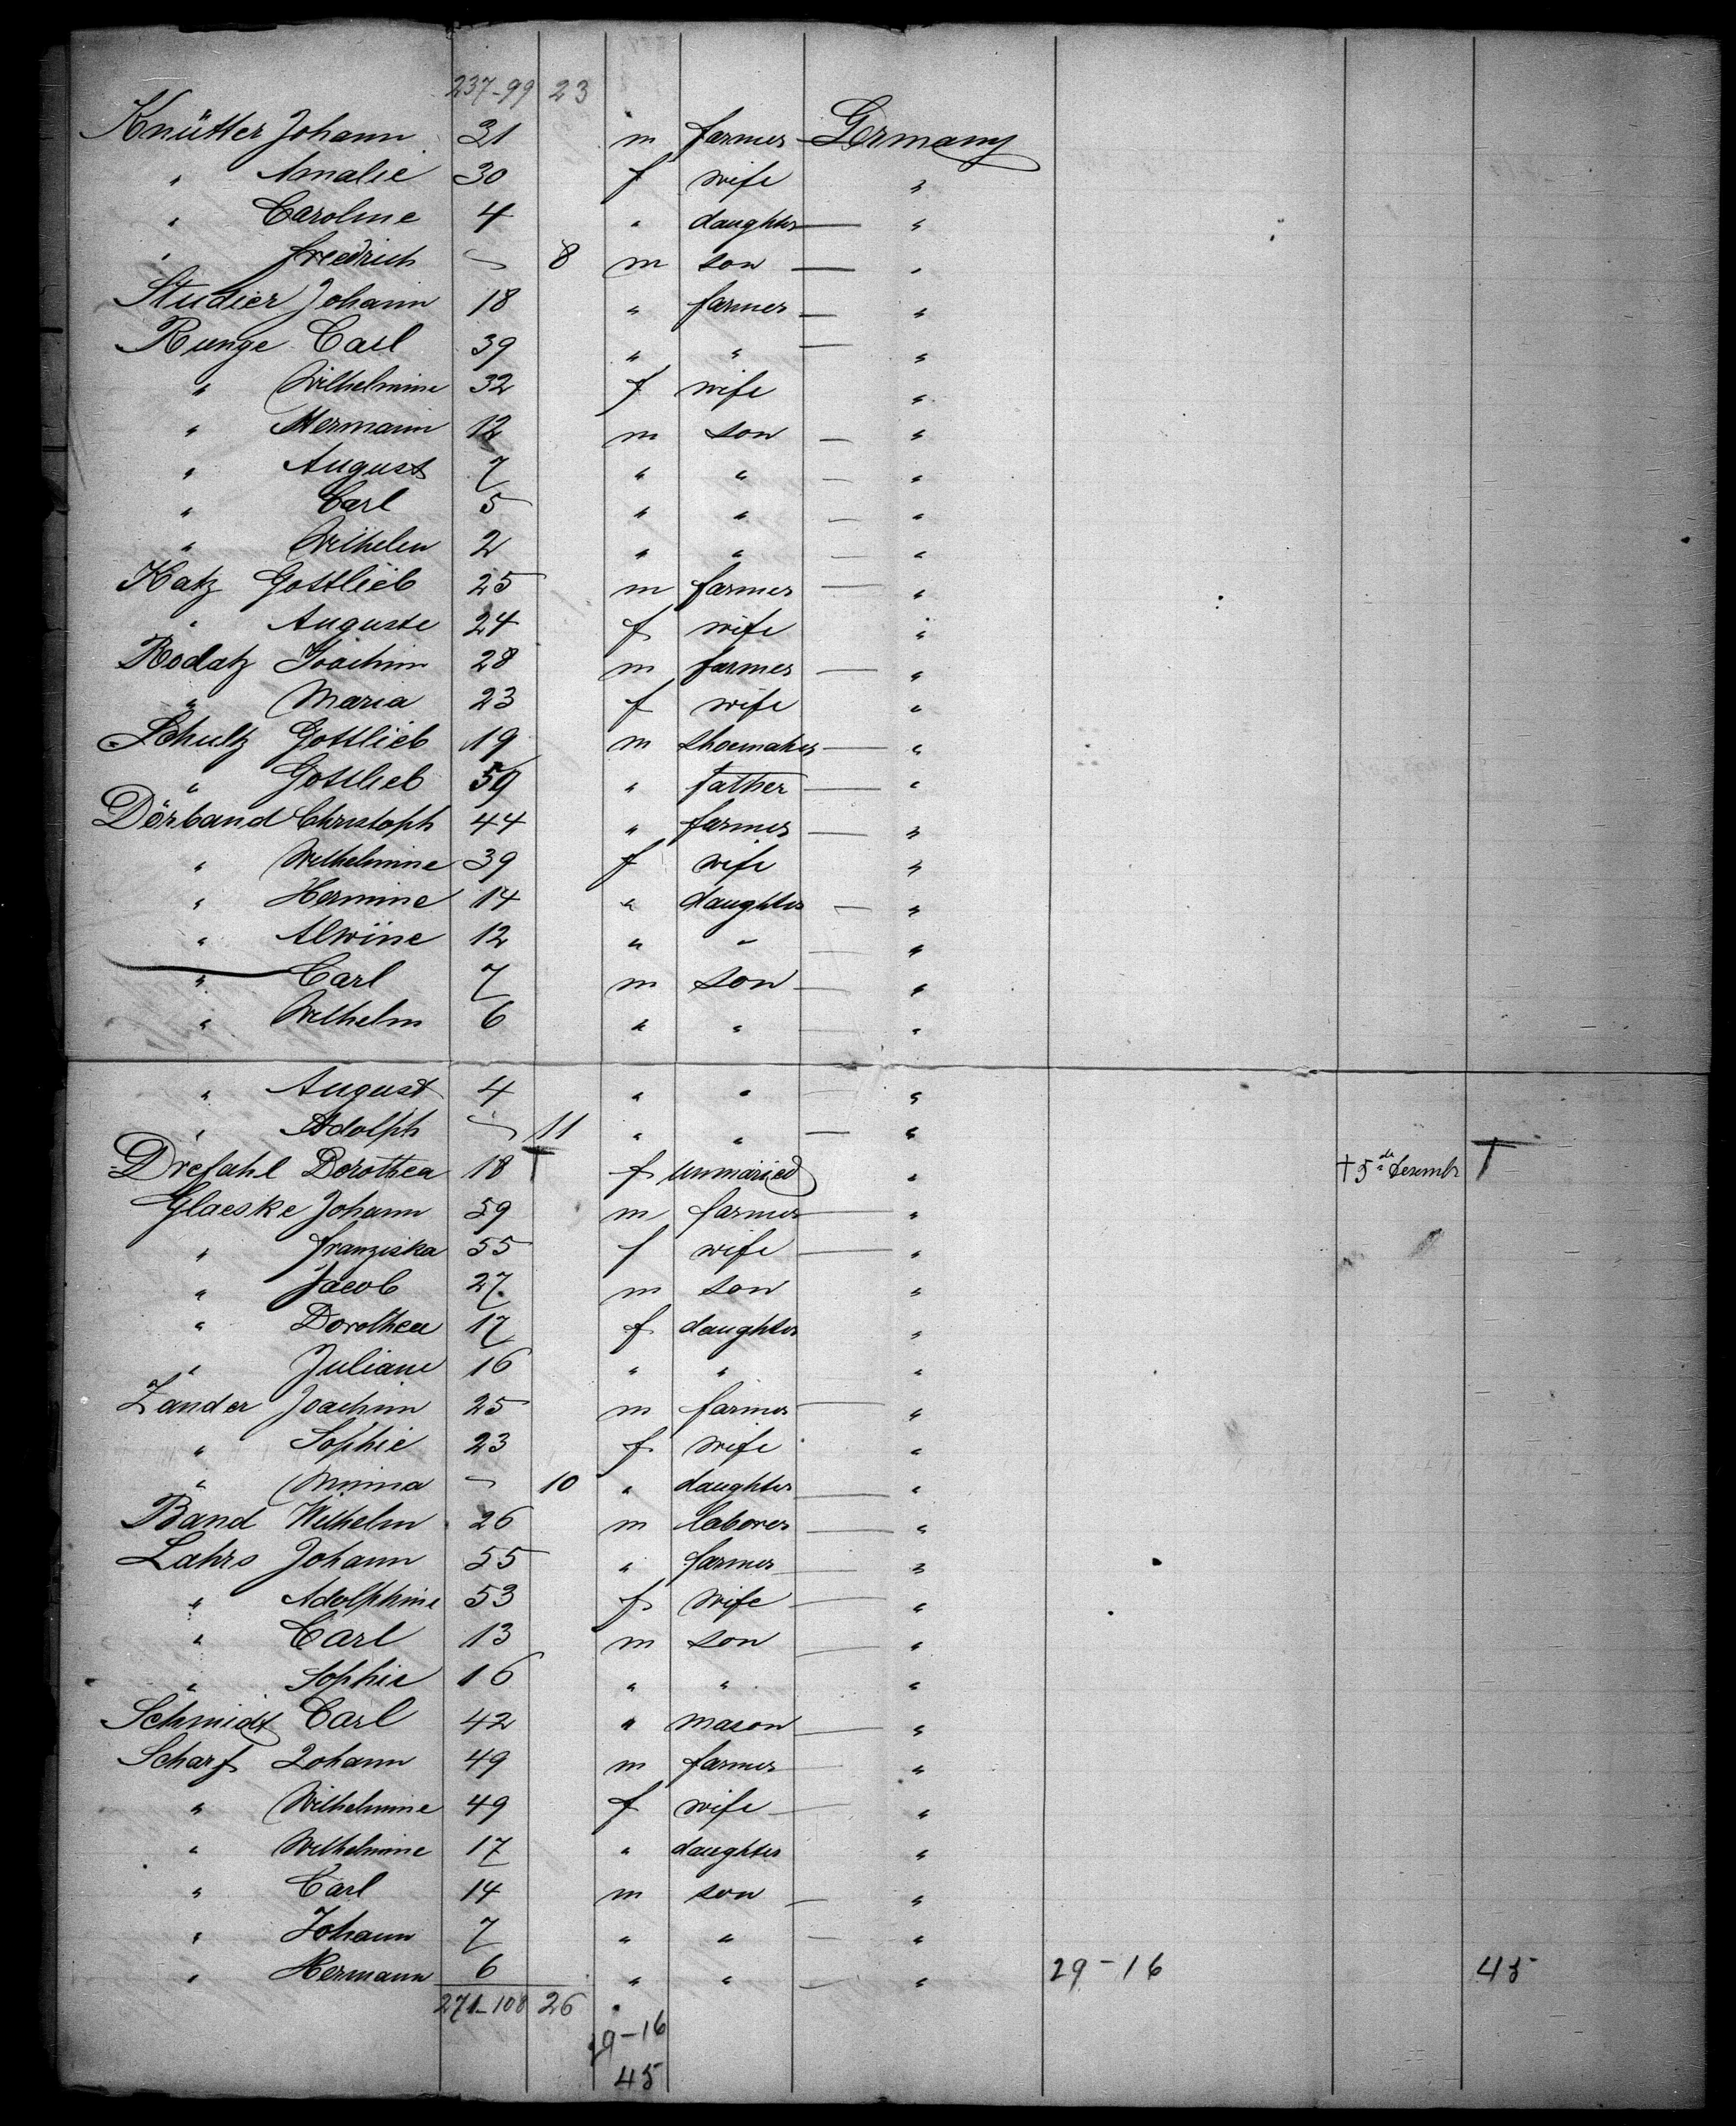 237-99 23
Knütter Johann 31 m farmer — Germany
" Amalie 30 f wife "
" Caroline 4 " daughter — "
" Friedrich — 8 m son — "
Studier Johann 18 " farmer — "
Runge Carl 39 " " — "
" Wilhelmine 32 f wife "
" Hermann 12 m son — "
" August 7 " " — "
" Carl 5 " " — "
" Wilhelm 2 " " — "
Katz Gottlieb 25 m farmer — "
" Auguste 24 f wife "
Rodatz Joachim 28 m farmer — "
" Maria 23 f wife "
Schultz Gottlieb 19 m shoemaker — "
" Gottlieb 59 " father — "
Dörband Christoph 44 " farmer — "
" Wilhelmine 39 f wife "
" Hermine 14 " daughter — "
" Alwine 12 " " — "
" Carl 7 m son — "
" Wilhelm 6 " " — "
" August 4 " " — "
" Adolph — 11 " " — "
Drefahl Dorothea 18 † f unmaried " † 5 de Desembr †
Glaeske Johann 59 m farmer — "
" Franziska 55 f wife — "
" Jacob 27 m son "
" Dorothea 17 f daughter "
" Juliane 16 " " "
Zander Joachim 25 m farmer — "
" Sophie 23 f wife "
" Minna — 10 " daughter — "
Band Wilhelm 26 m laborer — "
Lahrs Johann 55 " farmer — "
" Adolphine 53 f wife — "
" Carl 13 m son — "
" Sophie 16 " " "
Schmidt Carl 42 " mason — "
Scharf Johann 49 m farmer — "
" Wilhelmine 49 f wife — "
" Wilhelmine 17 " daughter "
" Carl 14 m son — "
" Johann 7 " " — "
" Hermann 6 " " — " 29-16 45
271-108 26
29-16
45